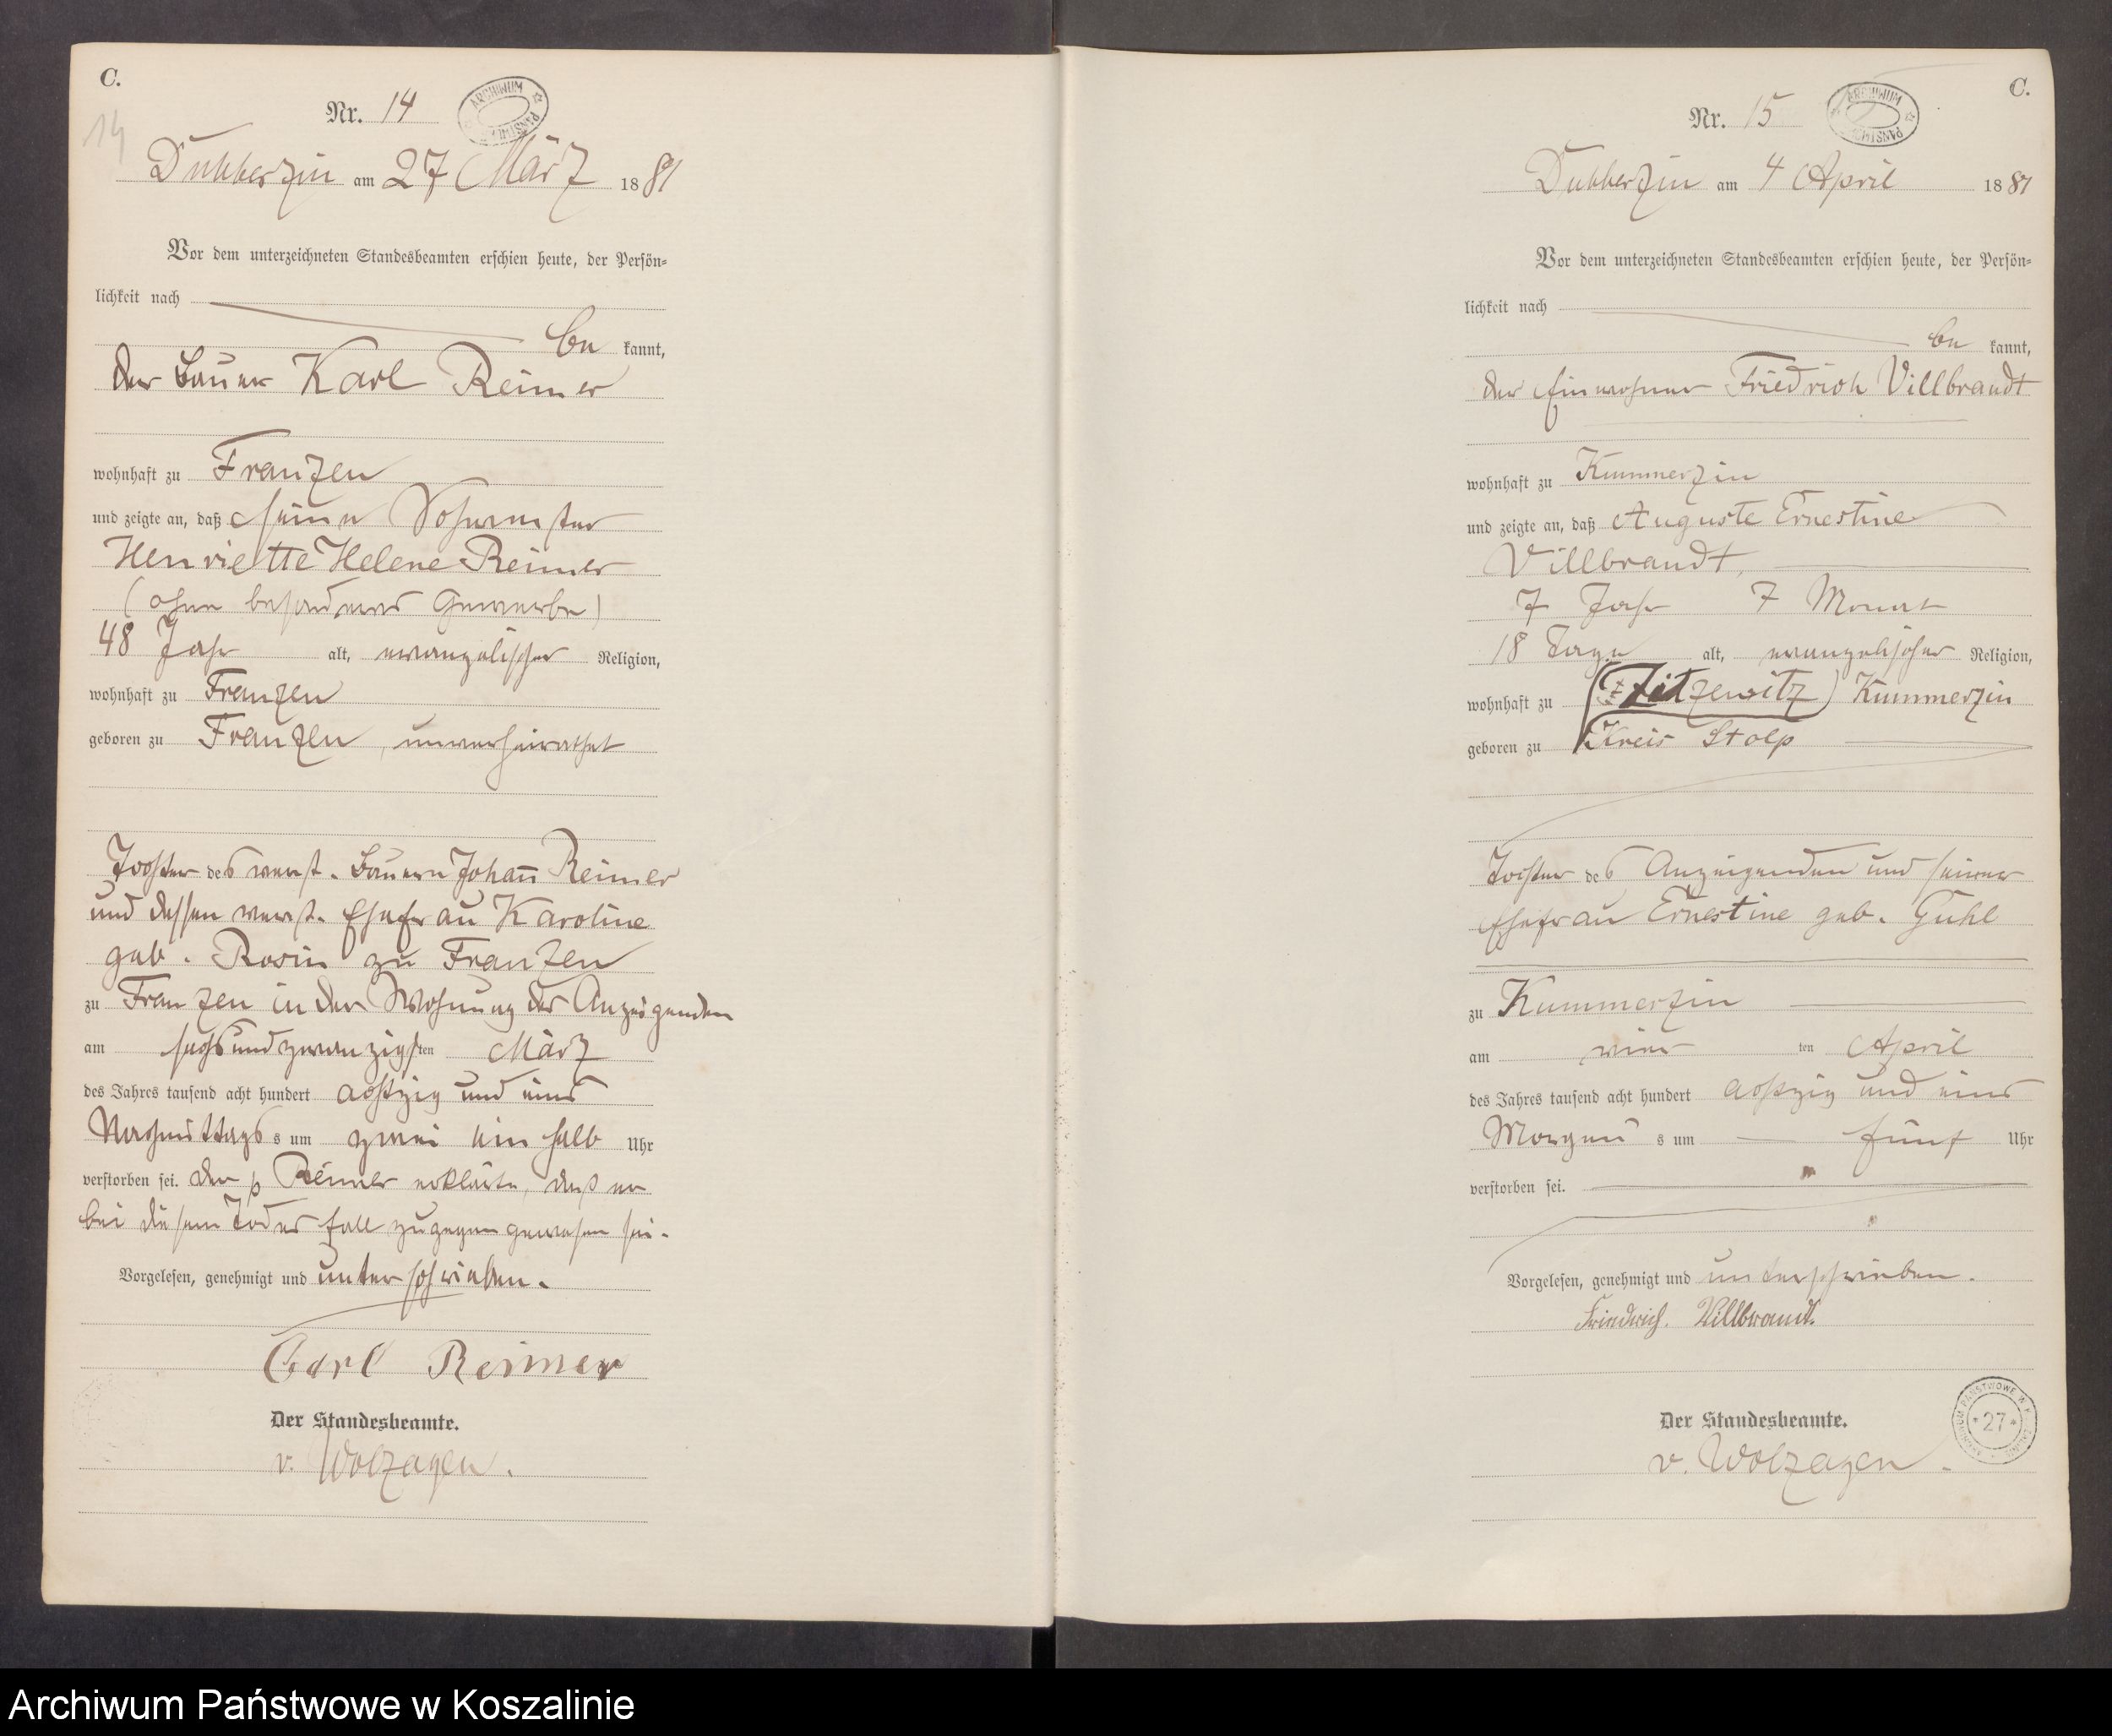 C.
14
Nr. 14
ARCHIWUM PAŃSTW
Dubberzin am 27 März 1881
Vor dem unterzeichneten Standesbeamten erschien heute, der Persön-
lichkeit nach
be kannt,
der Bauer Karl Reimer
wohnhaft zu Franzen
und zeigte an, daß seine Schwester
Henriette Helene Reimer
(ohne besonderes Gewerbe)
48 Jahr alt, evangelischer Religion,
wohnhaft zu Franzen
geboren zu Franzen, unverheirathet
Tochter des verst. Bauern Johann̄ Reimer
und dessen verst. Ehefrau Karoline
geb. Rosin zu Franzen
zu Franzen in der Wohnung des Anzeigenden
am sechsundzwanzigsten März
des Jahres tausend acht hundert achtzig und eins
Nachmittags s um zwei ein halb Uhr
verstorben sei. Der p Reimer erklärte, daß er
bei diesem Todesfall zugegen gewesen sei.
Vorgelesen, genehmigt und unterschrieben.
Carl Reimer
Der Standesbeamte.
v. Wolzogen.
C.
Nr. 15
ARCHIWUM PAŃSTW
Dubberzin am 4 April 1881
Vor dem unterzeichneten Standesbeamten erschien heute, der Persön-
lichkeit nach
be kannt,
der Einwohner Friedrich Villbrandt
wohnhaft zu Kummerzin
und zeigte an, daß Auguste Ernestine
Villbrandt,
7 Jahr 7 Monat
18 Tage alt, evangelischer Religion,
wohnhaft zu (Zitzewitz) Kummerzin
geboren zu Kreis Stolp
Tochter des Anzeigenden und seiner
Ehefrau Ernestine geb. Guhl
zu Kummerzin
am vier ten April
des Jahres tausend acht hundert achtzig und eins
Morgen s um fünf Uhr
verstorben sei.
Vorgelesen, genehmigt und unterschrieben.
Friedrich. Villbrandt.
Der Standesbeamte.
v. Wolzogen.
ARCHIWUM PAŃSTWOWE W KOSZALINIE
* 27 *
Archiwum Państwowe w Koszalinie